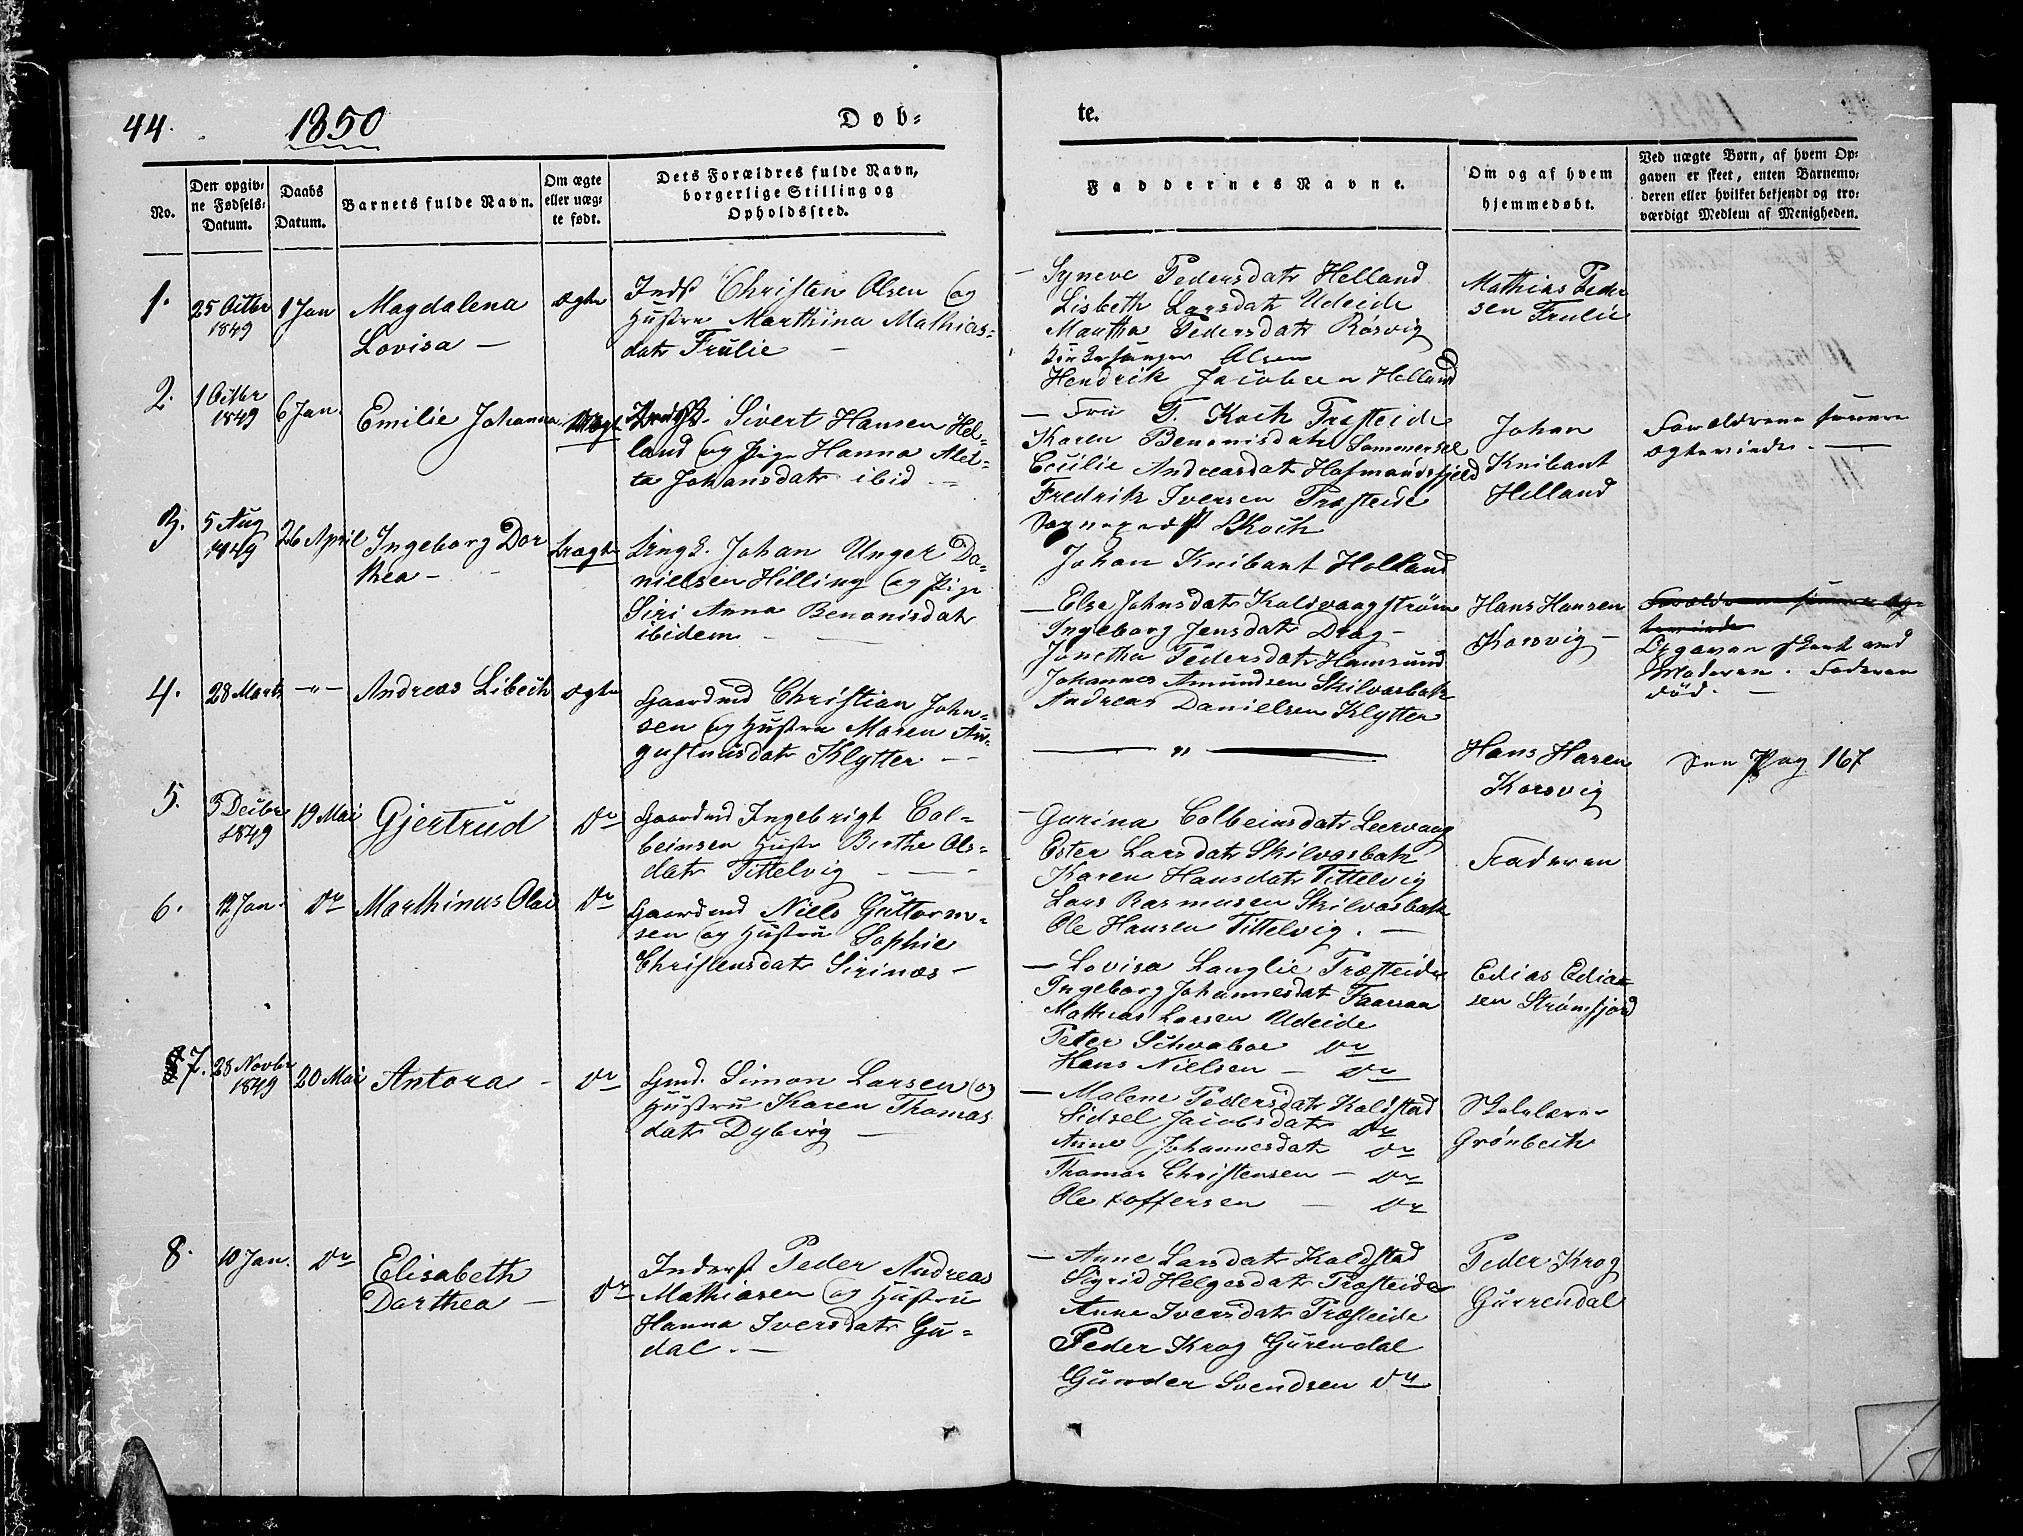 44.
1850
Døb-
te.
No.
Den opgiv-
ne Fødsels-
Datum.
Daabs
Datum.
Barnets fulde Navn.
Om ægte
eller uæg-
te født.
Dets Forældres fulde Navn,
borgerlige Stilling og
Opholdssted.
Faddernes Navne.
Om og af hvem
hjemmedøbt.
Ved uægte Børn, af hvem Op-
gaven er skeet, enten Barnemo-
deren eller hvilket bekjendt og tro-
værdigt Medlem af Menigheden.
1.
25 Octbr
1849
1 Jan
Magdalena
Lovisa —
ægte
Inds Christen Olsen og
Hustru Marthina Mathias-
datr Frulie —
— Syneve Pedersdatr Helland
Lisbeth Larsdatr Udeide
Martha Pedersdatr Rösvig
Olsen
Hendrik Jacobsen Helland
Mathias Peder
sen Frulie
2.
1 Octbr
1849
6 Jan.
Emilie Johanna
Sivert Hansen Hel-
land og Pige Hanna Alet-
ta Johansdatr ibid —
— Fru T. Koch Præsteide
Karen Benonisdatr Sommersel
Cecilie Andreasdat Hafmandsfjeld
Fredrik Iversen Præsteide
Sognepræst Koch
Johan Knibant Helland
Johan
Knibant
Helland
Forældrene senere
ægteviede. —
3.
5 Aug
1849
26 April
Ingeborg Dor
thea —
uægte
Ungk. Johan Unger Da-
nielsen Hilling og Pige
Siri Anna Benonisdatr
ibidem —
— Else Johnsdatr Kaldvaagstrøm
Ingeborg Jensdatr Drag —
Jonetha Pedersdatr Hamsund
Johannes Amundsen Skilvasbak
Andreas Danielsen Klytter
Hans Hansen
Korsvig —
Forældrene senere æg-
teviede
Opgaven skeet ved
Moderen. Faderen
død. —
4.
28 Marts
—"—
Andreas Libech
ægte
Gaardmd Christian John-
sen og Hustru Maren Au-
gustinusdatr Klytter —
— " —
Hans Hansen
Korsvig
See Pag 167
5.
3 Decbr
1849
19 Mai
Gjertrud
Do
Gaardmd Ingebrigt Col-
beinsen Hustr Birthe Ols-
datr Tittelvig —
— Gurina Colbeinsdatr Leervaag
Ester Larsdatr Skilvasbak
Karen Hansdatr Tittelvig
Lars Rasmusen Skilvasbak
Ole Hansen Tittelvig. —
Faderen
6.
12 Jan.
Do
Marthinus Olai
Do
Gaardmd Niels Guttorm-
sen og Hustru Sophie
Christensdatr Sirinæs —
— Lovisa Langlie Præsteide
Ingeborg Johannesdat
Mathias Larsen Udeide
Peter Schvaboe Do
Hans Nielsen — Do
Edias Edias-
sen Strømfjord
7.
28 Novbr
1849
20 Mai
Antora —
Do
Gmd. Simon Larsen og
Hustru Karen Thomas
datr Dybvig —
— Malene Pedersdatr Kaldstad
Sidsel Jacobsdatr Do
Anne Johannesdat Do
Thomas Christensen — Do
Ole toffersen — Do
Skolelærer
Grönbech
8.
10 Jan.
Do
Elisabeth
Dorthea —
Do
Inderst Peder Andreas
Mathiasen og Hustru
Hanna Iversdatr Gu-
dal. —
— Anne Larsdatr Kaldstad
Sigrid Helgesdatr Præsteide
Anne Iversdatr Præsteide
Peder Krog Gurendal
Gunder Svendsen Do
Peder Krog
Gurrendal